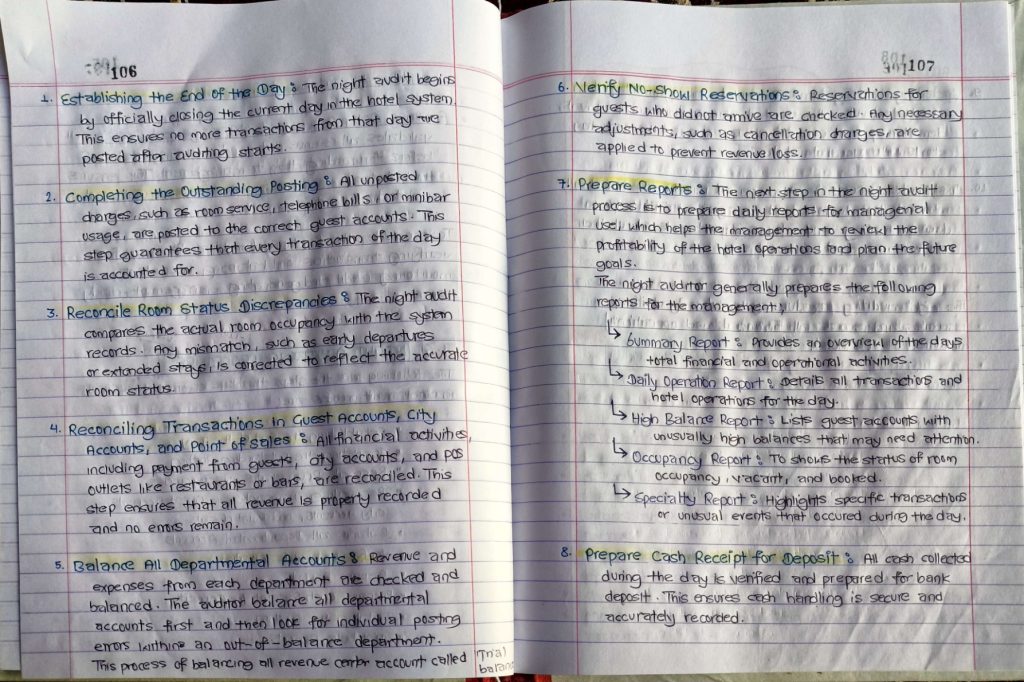 106
1. Establishing the End of the Day : The night audit begins
by officially closing the current day in the hotel system.
This ensures no more transactions from that day are
posted after auditing starts.
2. Completing the Outstanding Posting : All unposted
charges, such as room service, telephone bills, or minibar
usage, are posted to the correct guest accounts. This
step guarantees that every transaction of the day
is accounted for.
3. Reconcile Room Status Discrepancies : The night audit
compares the actual room occupancy with the system
records. Any mismatch, such as early departures
or extanded stays, is corrected to reflect the accurate
room status.
4. Reconciling Transactions in Guest Accounts, City
Accounts, and Point of Sales : All financial activities,
including payment from guests, city accounts, and POS
outlets like restaurants or bars, are reconciled. This
step ensures that all revenue is properly recorded
and no errors remain.
5. Balance All Departmental Accounts : Revenue and
expenses from each department are checked and
balanced. The auditor balance all departmental
accounts first and then look for individual posting
errors withine an out-of-balance department.
This process of balancing all revenue center account called
Trial
balance
107
6. Verify No-Show Reservations : Reservations for
guests who did not arrive are checked. Any necessary
adjustments, such as cancellation charges, are
applied to prevent revenue loss.
7. Prepare Reports : The next step in the night audit
process is to prepare daily reports for managerial
use, which helps the management to review the
profitability of the hotel operations and plan the future
goals.
The night auditor generally prepares the following
reports for the management;
↳ Summary Report : Provides an overview of the days
total financial and operational activities.
↳ Daily Operation Report : Details all transactions and
hotel operations for the day.
↳ High Balance Report : Lists guest accounts with
unusually high balances that may need attention.
↳ Occupancy Report : To shows the status of room
occupancy, vacant, and booked.
↳ Specialty Report : Highlights specific transactions
or unusual events that occured during the day.
8. Prepare Cash Receipt for Deposit : All cash collected
during the day is verified and prepared for bank
deposit. This ensures cash handling is secure and
accurately recorded.